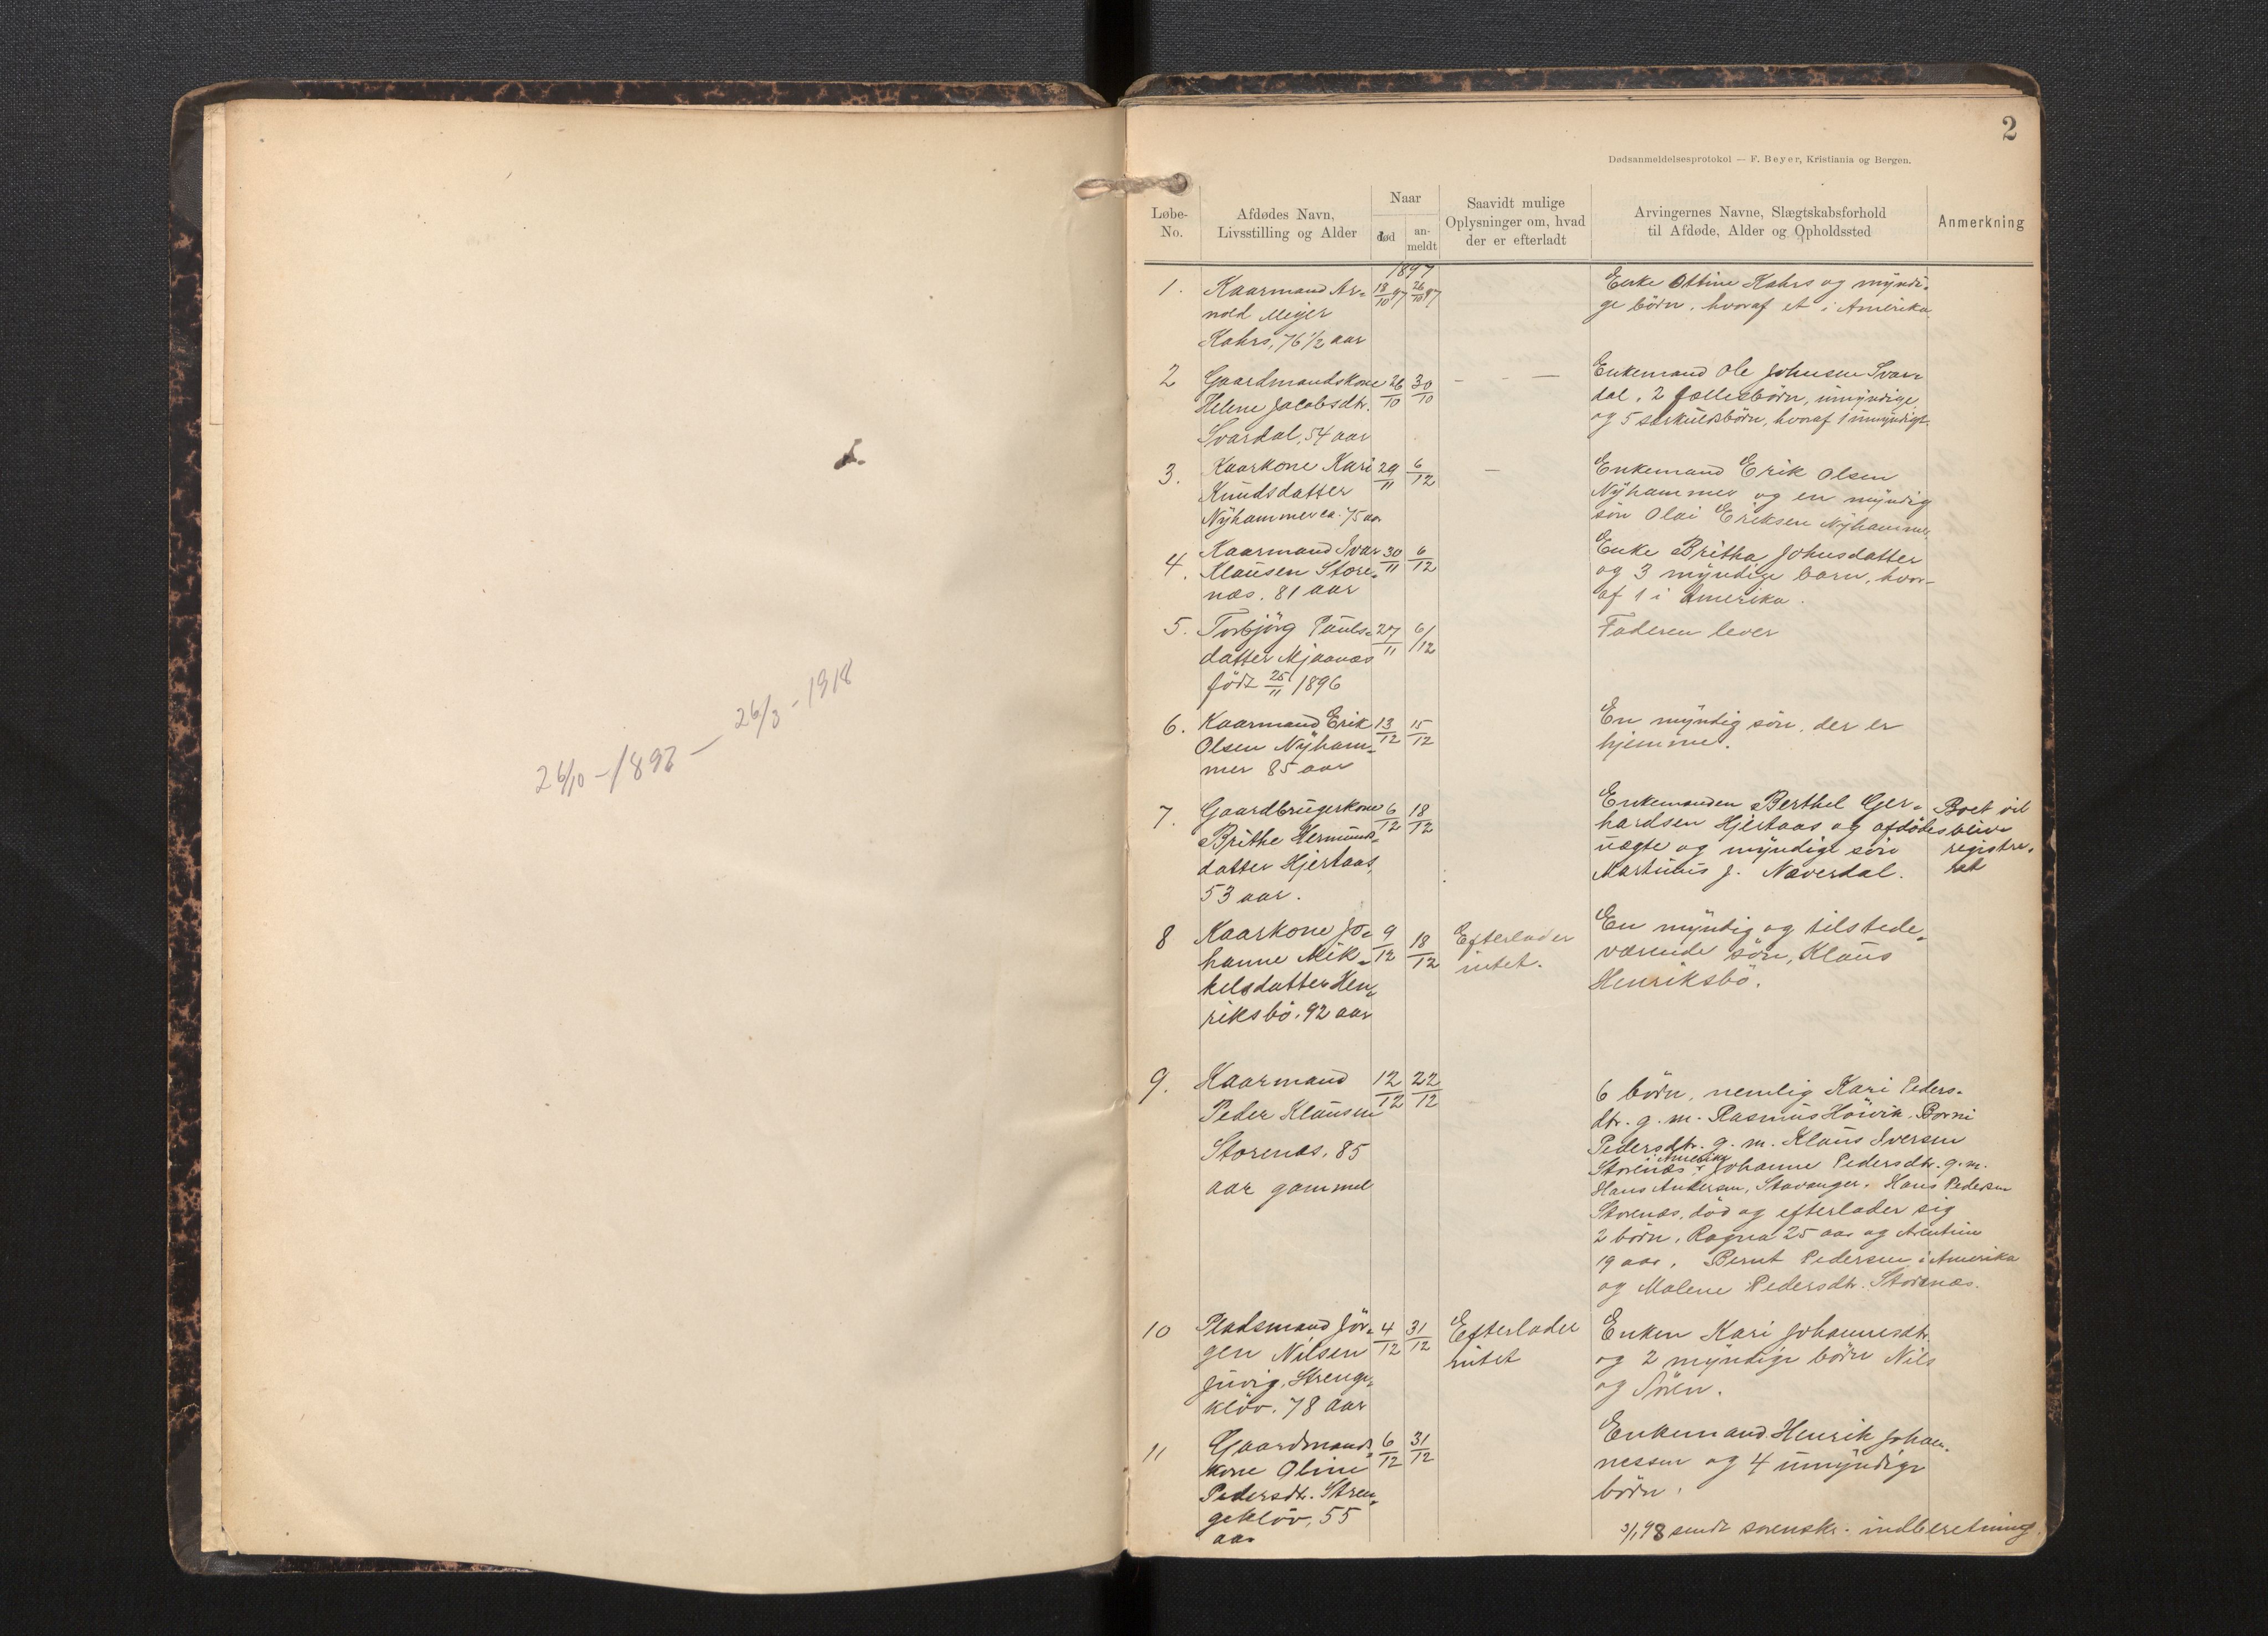 26/10 - 1897 - 26/3 - 1918
2
Dødsanmeldelsesprotokol — F. Beyer, Kristiania og Bergen.
Løbe-
No.
Afdødes Navn,
Livsstilling og Alder
Naar
død
an-
meldt
Saavidt mulige
Oplysninger om, hvad
der er efterladt
Arvingernes Navne, Slægtskabsforhold
til Afdøde, Alder og Opholdssted
Anmerkning
1897
1. Kaarmand Ar- 18/10 97 26/10 97 Enke Ottine Kahrs og myndi-
nold Meyer ge börn, hvoraf et i Amerika
Kahrs, 76 1/2 aar
2 Gaardmandskone 26/10 30/10 - - — Enkemand Ole Johnsen Svar-
Helene Jacobsdtr. dal, 2 fællesbörn, umyndige
Svardal, 54 aar og 5 særkuldsbörn, hvoraf 1 umyndigt.
3. Kaarkone Kari 29/11 6/12 — Enkemand Erik Olsen
Knudsdatter Nyhammer og en myndig
Nyhammer ca. 75 aar sön Olai Eriksen Nyhammer
4. Kaarmand Ivar 30/11 6/12 Enke Britha Johnsdatter
Klausen Store- og 3 myndige barn, hvor-
næs. 81 aar af 1 i Amerika.
5. Torbjörg Pauls- 27/11 6/12 Faderen lever
datter Mjaanæs
født 25/11 1896
6. Kaarmand Erik 13/12 15/12 En myndig sön, der er
Olsen Nyham- hjemme.
mer 85 aar
7. Gaardbrugerkone 6/12 18/12 Enkemanden Berthel Ger- Boet vil
Brithe Hermunds- hardsen Hjertaas og afdödes blive
datter Hjertaas, uægte og myndige sön registre-
53 aar. Martinus J. Næverdal. ret
8 Kaarkone Jo- 9/12 18/12 Efterlader En myndig og tilstede-
hanne Mik- intet. værende sön, Klaus
kelsdatter Hen- Henriksbö.
riksbö. 92 aar
9. Kaarmand 12/12 22/12 6 börn, nemlig Kari Peders-
Peder Klausen dtr. g. m. Rasmus Höivik. Borni
Storenæs, 85 Pedersdtr. g. m. Klaus Iversen
aar gammel Storenæs i Amerika, Johanne Pedersdtr. g. m.
Hans Andersen, Stavanger. Hans Pedersen
Storenæs, död og efterlader sig
2 börn, Ragna 25 aar og Arentine
19 aar, Bernt Pedersen i Amerika
og Malene Pedersdtr. Storenæs.
10 Pladsmand Jör- 4/12 31/12 Efterlader Enken Kari Johannesdtr.
gen Nilsen intet og 2 myndige börn Nils
Juvig, Strenge- og Sören.
klöv. 78 aar
11 Gaardmands- 6/12 31/12 Enkemand Henrik Johan-
kone Oline nessen og 4 umyndige
Pedersdtr. Stren- börn.
geklöv, 55
aar
3/1 98 sendt sorenskr. indberetning.